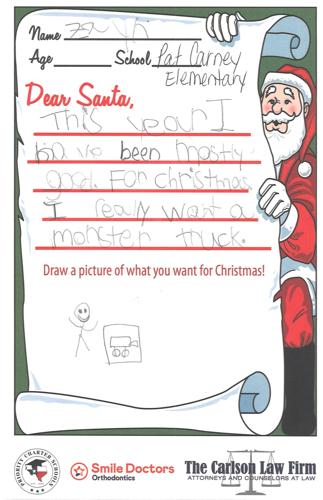 Name
Age School Pat Carney
Elementary
Dear Santa,
This year I
have been mostly
good. For christmas
I really want a
monster truck.
Draw a picture of what you want for Christmas!
PRIORITY CHARTER SCHOOLS
Smile Doctors
Orthodontics
The Carlson Law Firm
ATTORNEYS AND COUNSELORS AT LAW